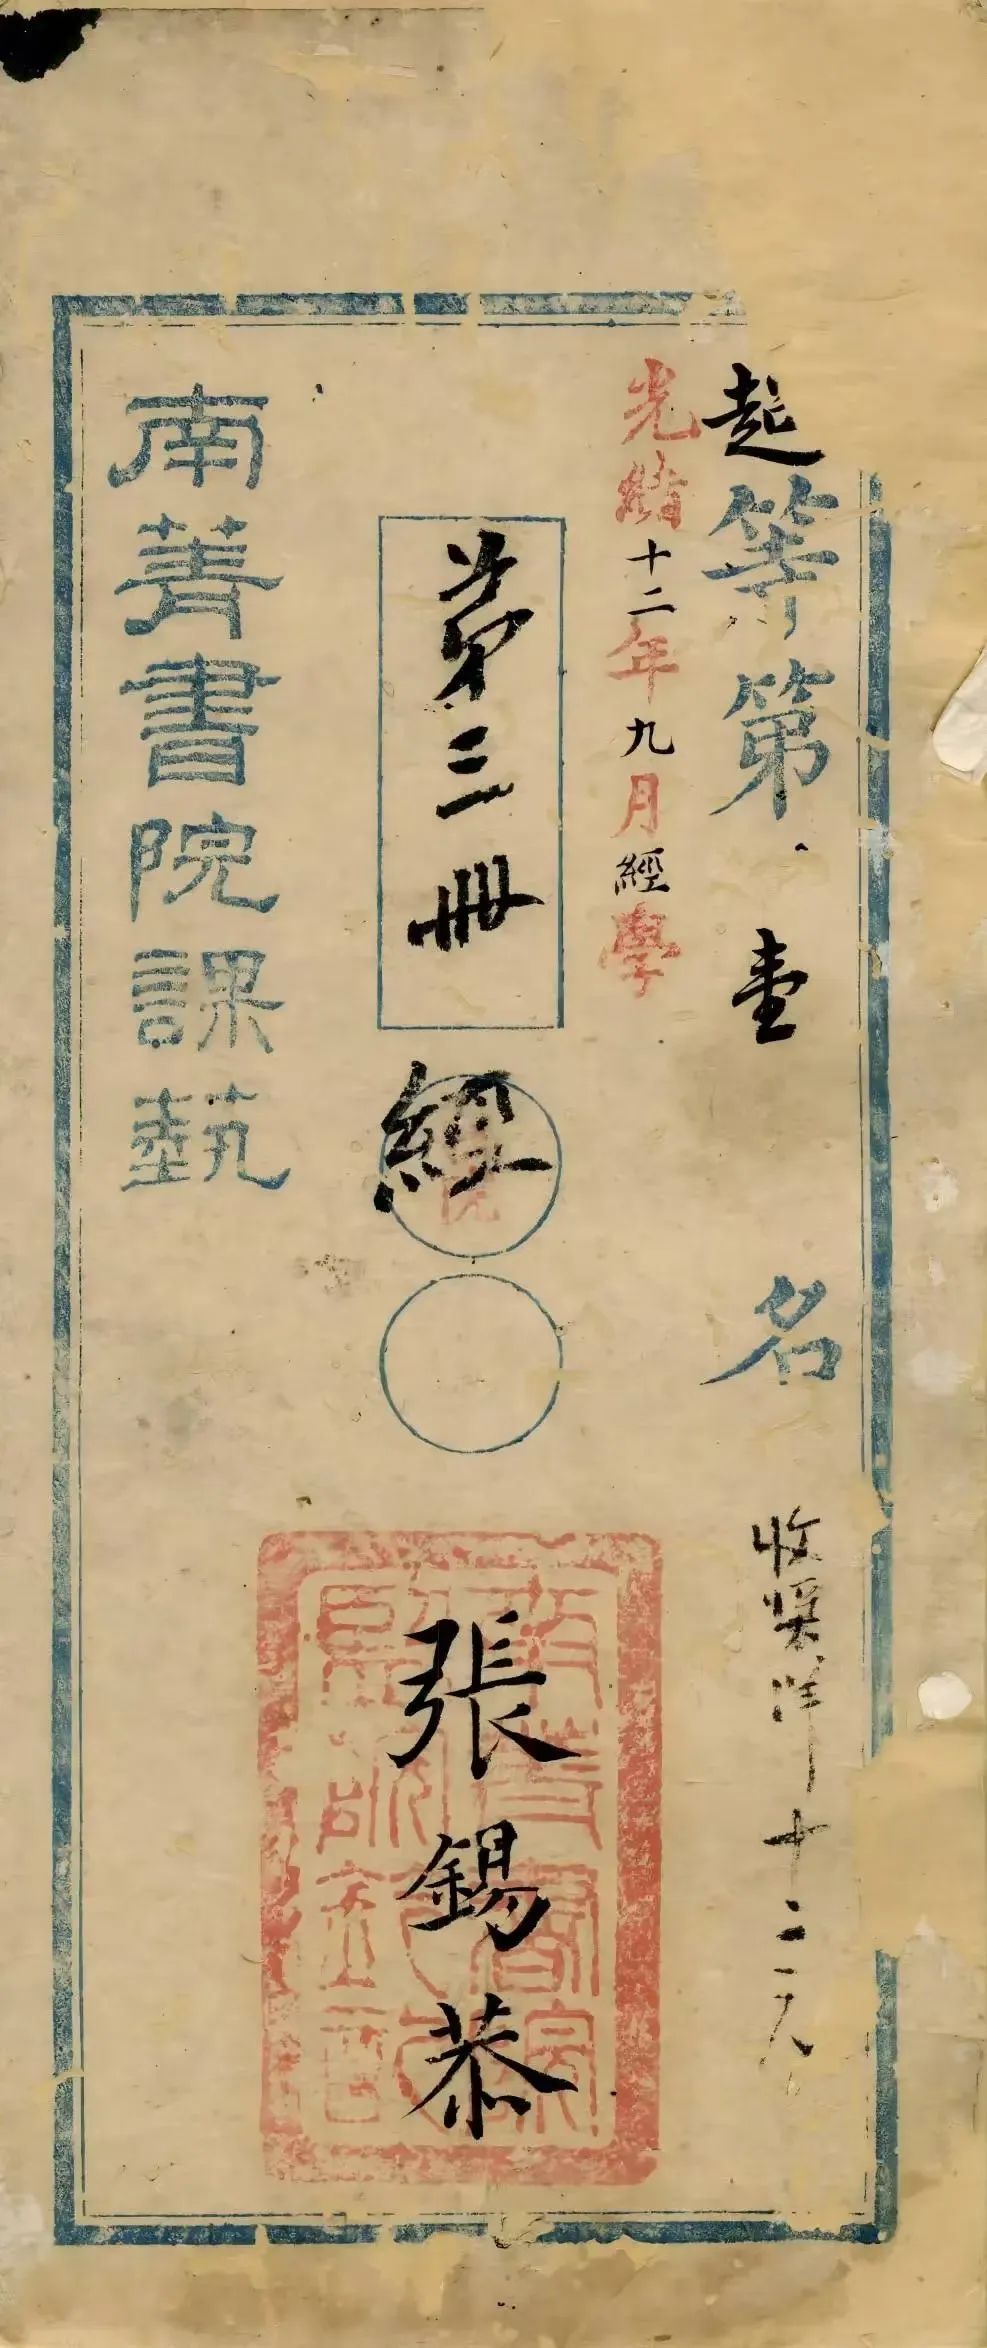 超等第壹名 收獎洋十二元
光緒十二年九月經學
第三冊 經 張錫恭
南菁書院課埶